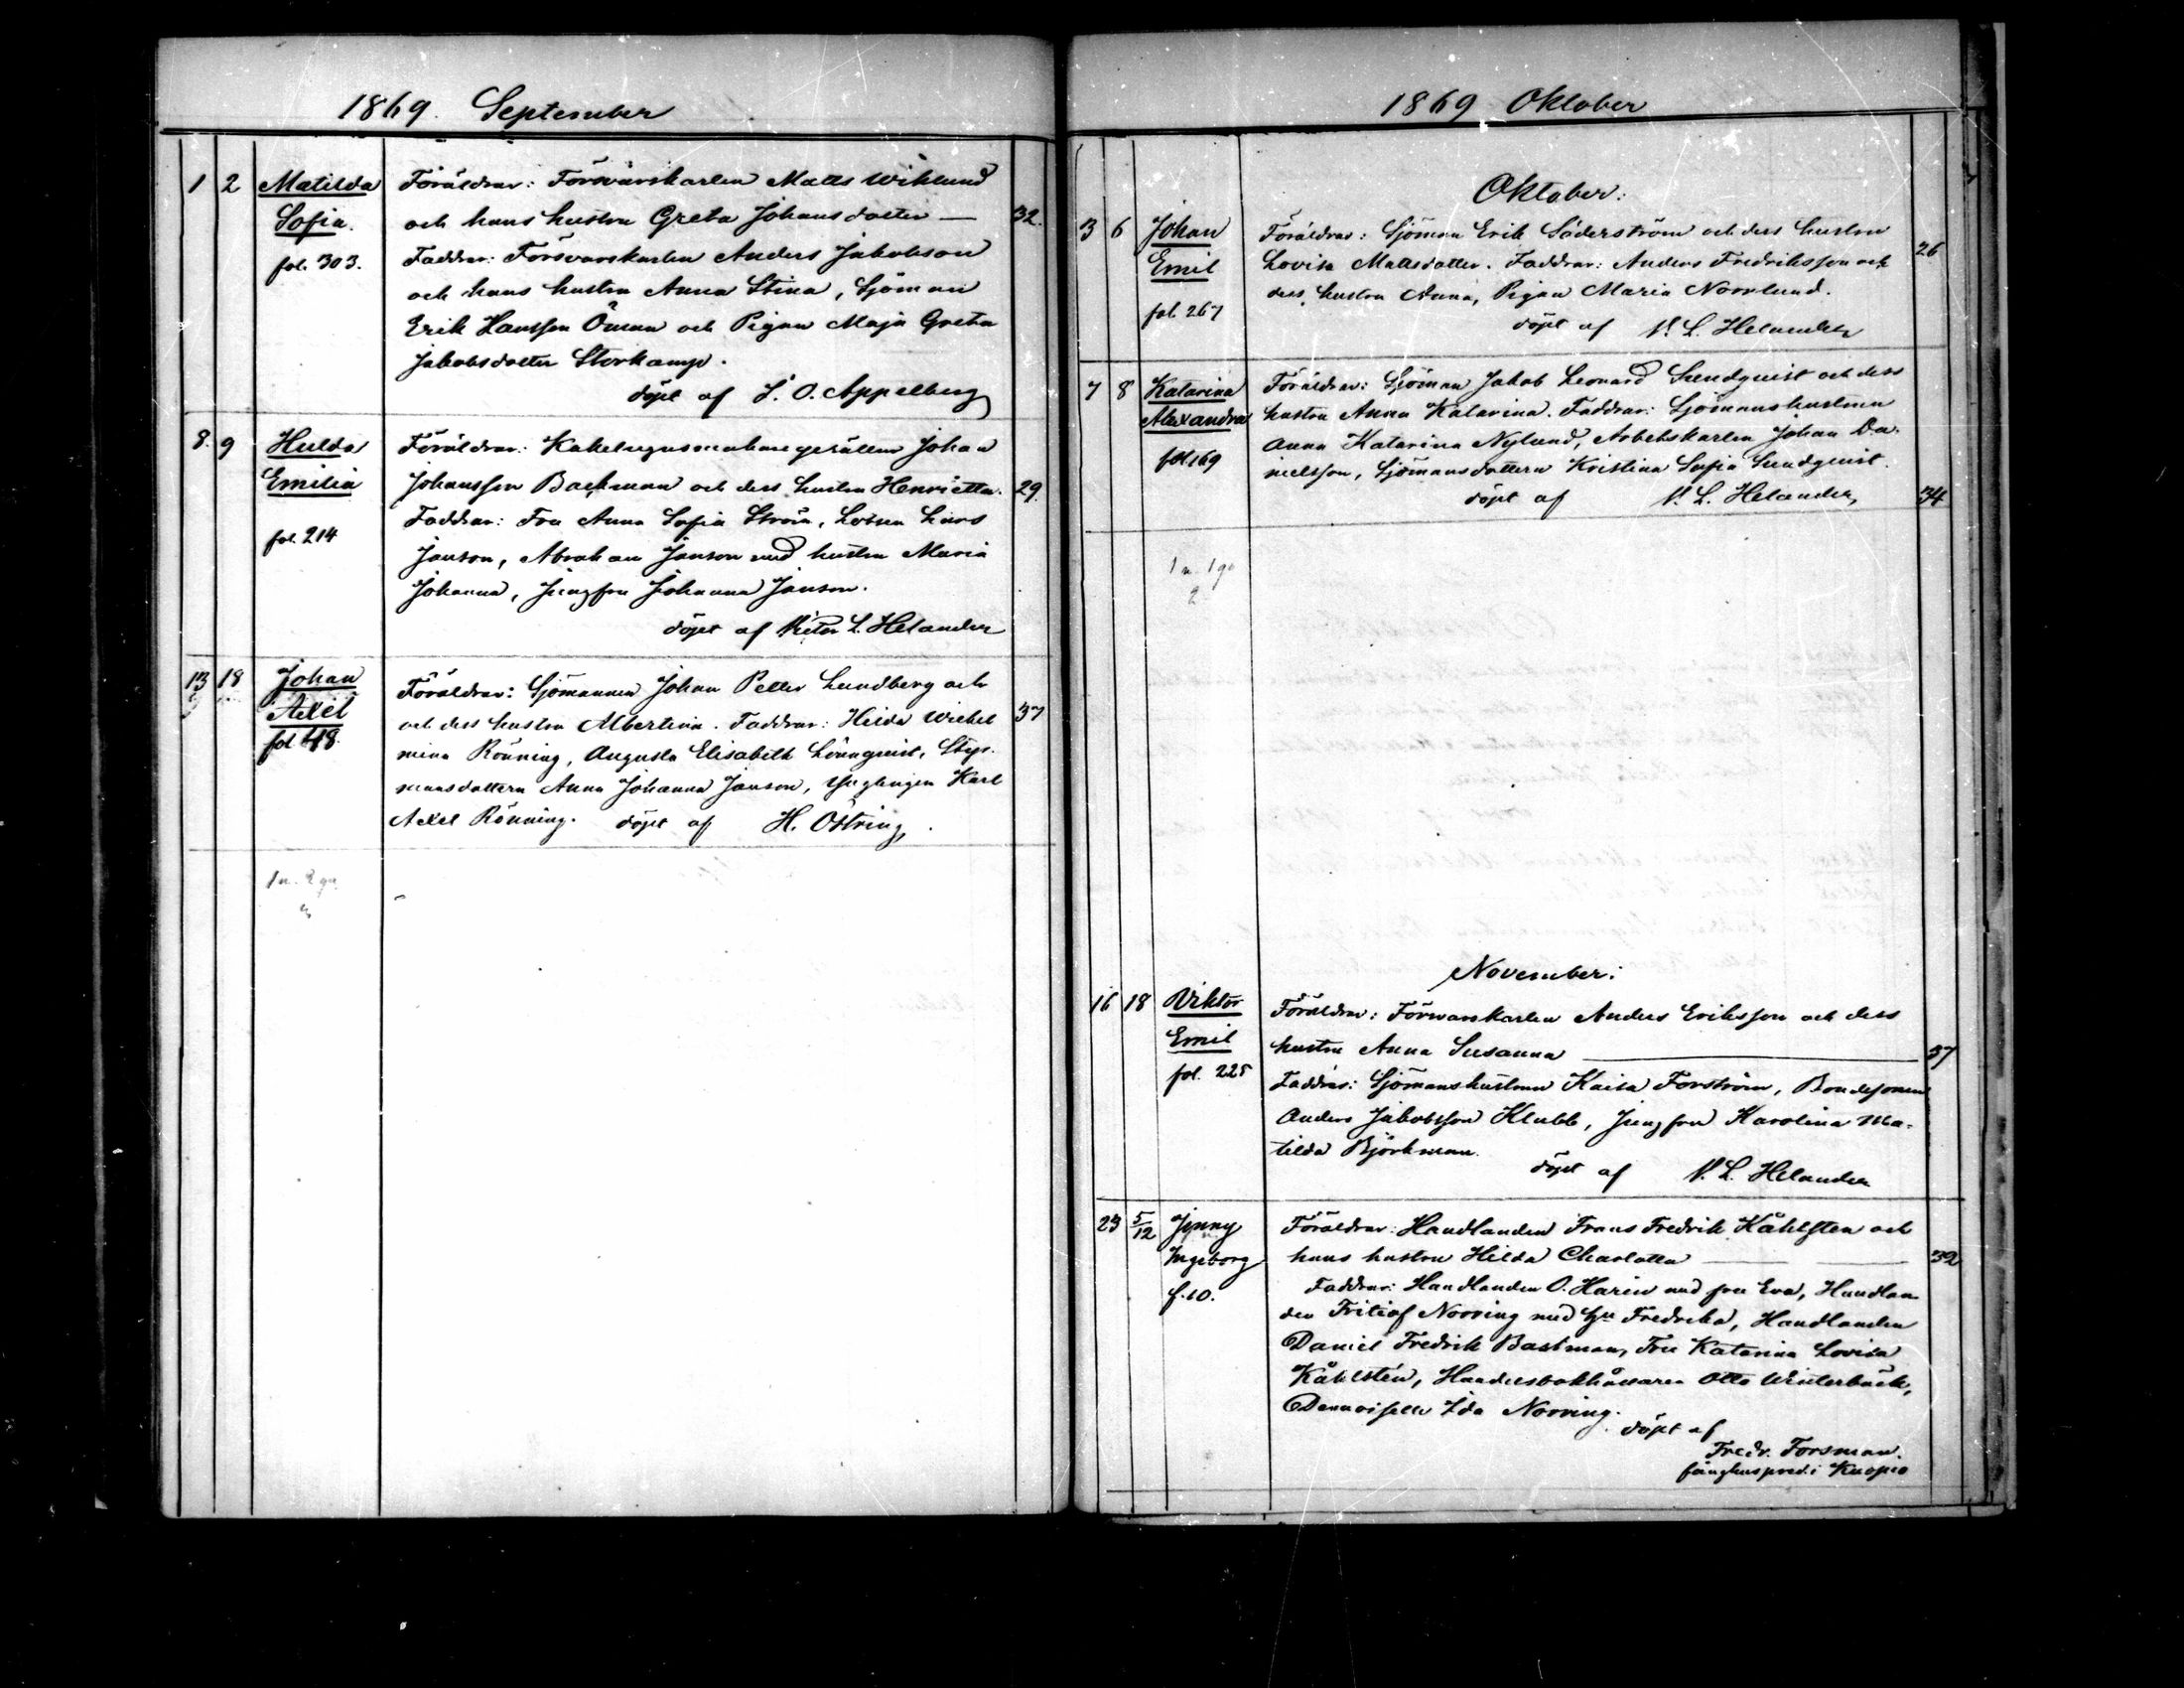 1869. September
1 2 Matilda Föräldrar: Försvarskarlen Matts Wiklund
Sofia. och hans hustru Greta Johansdotter — 32.
fol. 303. Faddrar: Försvarskarlen Anders Jakobson
och hans hustru Anna Stina, Sjöman
Erik Hansson Öman och Pigan Maja Greta
Jakobsdotter Storkamp.
döpt af L. O. Appelberg
8. 9 Hulda Föräldrar: Kakelugnsmakaregesällen Johan
Emilia Johansson Backman och dess hustru Henrietta. 29.
fol. 214 Faddrar: Fru Anna Sofia Ström, Lotsen Lars
Janson, Abraham Janson med hustru Maria
Johanna, Jungfru Johanna Janson.
döpt af Viktor L. Helander
13 18 Johan Föräldrar: Sjömannen Johan Petter Lundberg och
Axel och dess hustru Albertina. Faddrar: Hilda Wilhel 37
fol 48. mina Rönning, Augusta Elisabeth Lönnquist, Styr.
mansdottern Anna Johanna Janson, Ynglingen Karl
Axel Rönning. döpt af H. Östring.
1869 Oktober
Oktober:
3 6 Johan Föräldrar: Sjöman Erik Söderström och dess hustru
Emil Lovisa Mattsdotter. Faddrar: Anders Fredriksson och 26
fol. 267 dess hustru Anna, Pigan Maria Norrlund.
döpt af V. L. Helander
7 8 Katarina Föräldrar: Sjöman Jakob Leonard Sundquist och dess
Alexandra hustru Anna Katarina. Faddrar: Sjömanshustrun
fol 169 Anna Katarina Nylund, Arbetskarlen Johan Da.
nielsson, Sjömansdottern Kristina Sofia Sundquist.
döpt af V. L. Helander, 34
November:
16 18 Viktor Föräldrar: Försvarskarlen Anders Eriksson och dess
Emil hustru Anna Susanna — 37
fol. 225 Faddrar: Sjömanshustrun Kaisa Forström, Bondesonen
Anders Jakobsson Klubb, Jungfru Karolina Ma-
tilda Björkman.
döpt af V. L. Helander
23 5/12 Jenny Föräldrar: Handlanden Frans Fredrik Kåhlsten och
Ingeborg hans hustru Hilda Charlotta — 32
f. 10. Faddrar: Handlanden O. Harin med fru Eva, Handlan
den Fritiof Norring med fru Fredrika, Handlanden
Daniel Fredrik Bastman, Fru Katarina Lovisa
Kåhlstén, Handelsbokhållaren Otto Winterbäck,
Demoiselle Ida Norring.
döpt af
Fredr. Forsman.
fånghuspred. i Kuopio